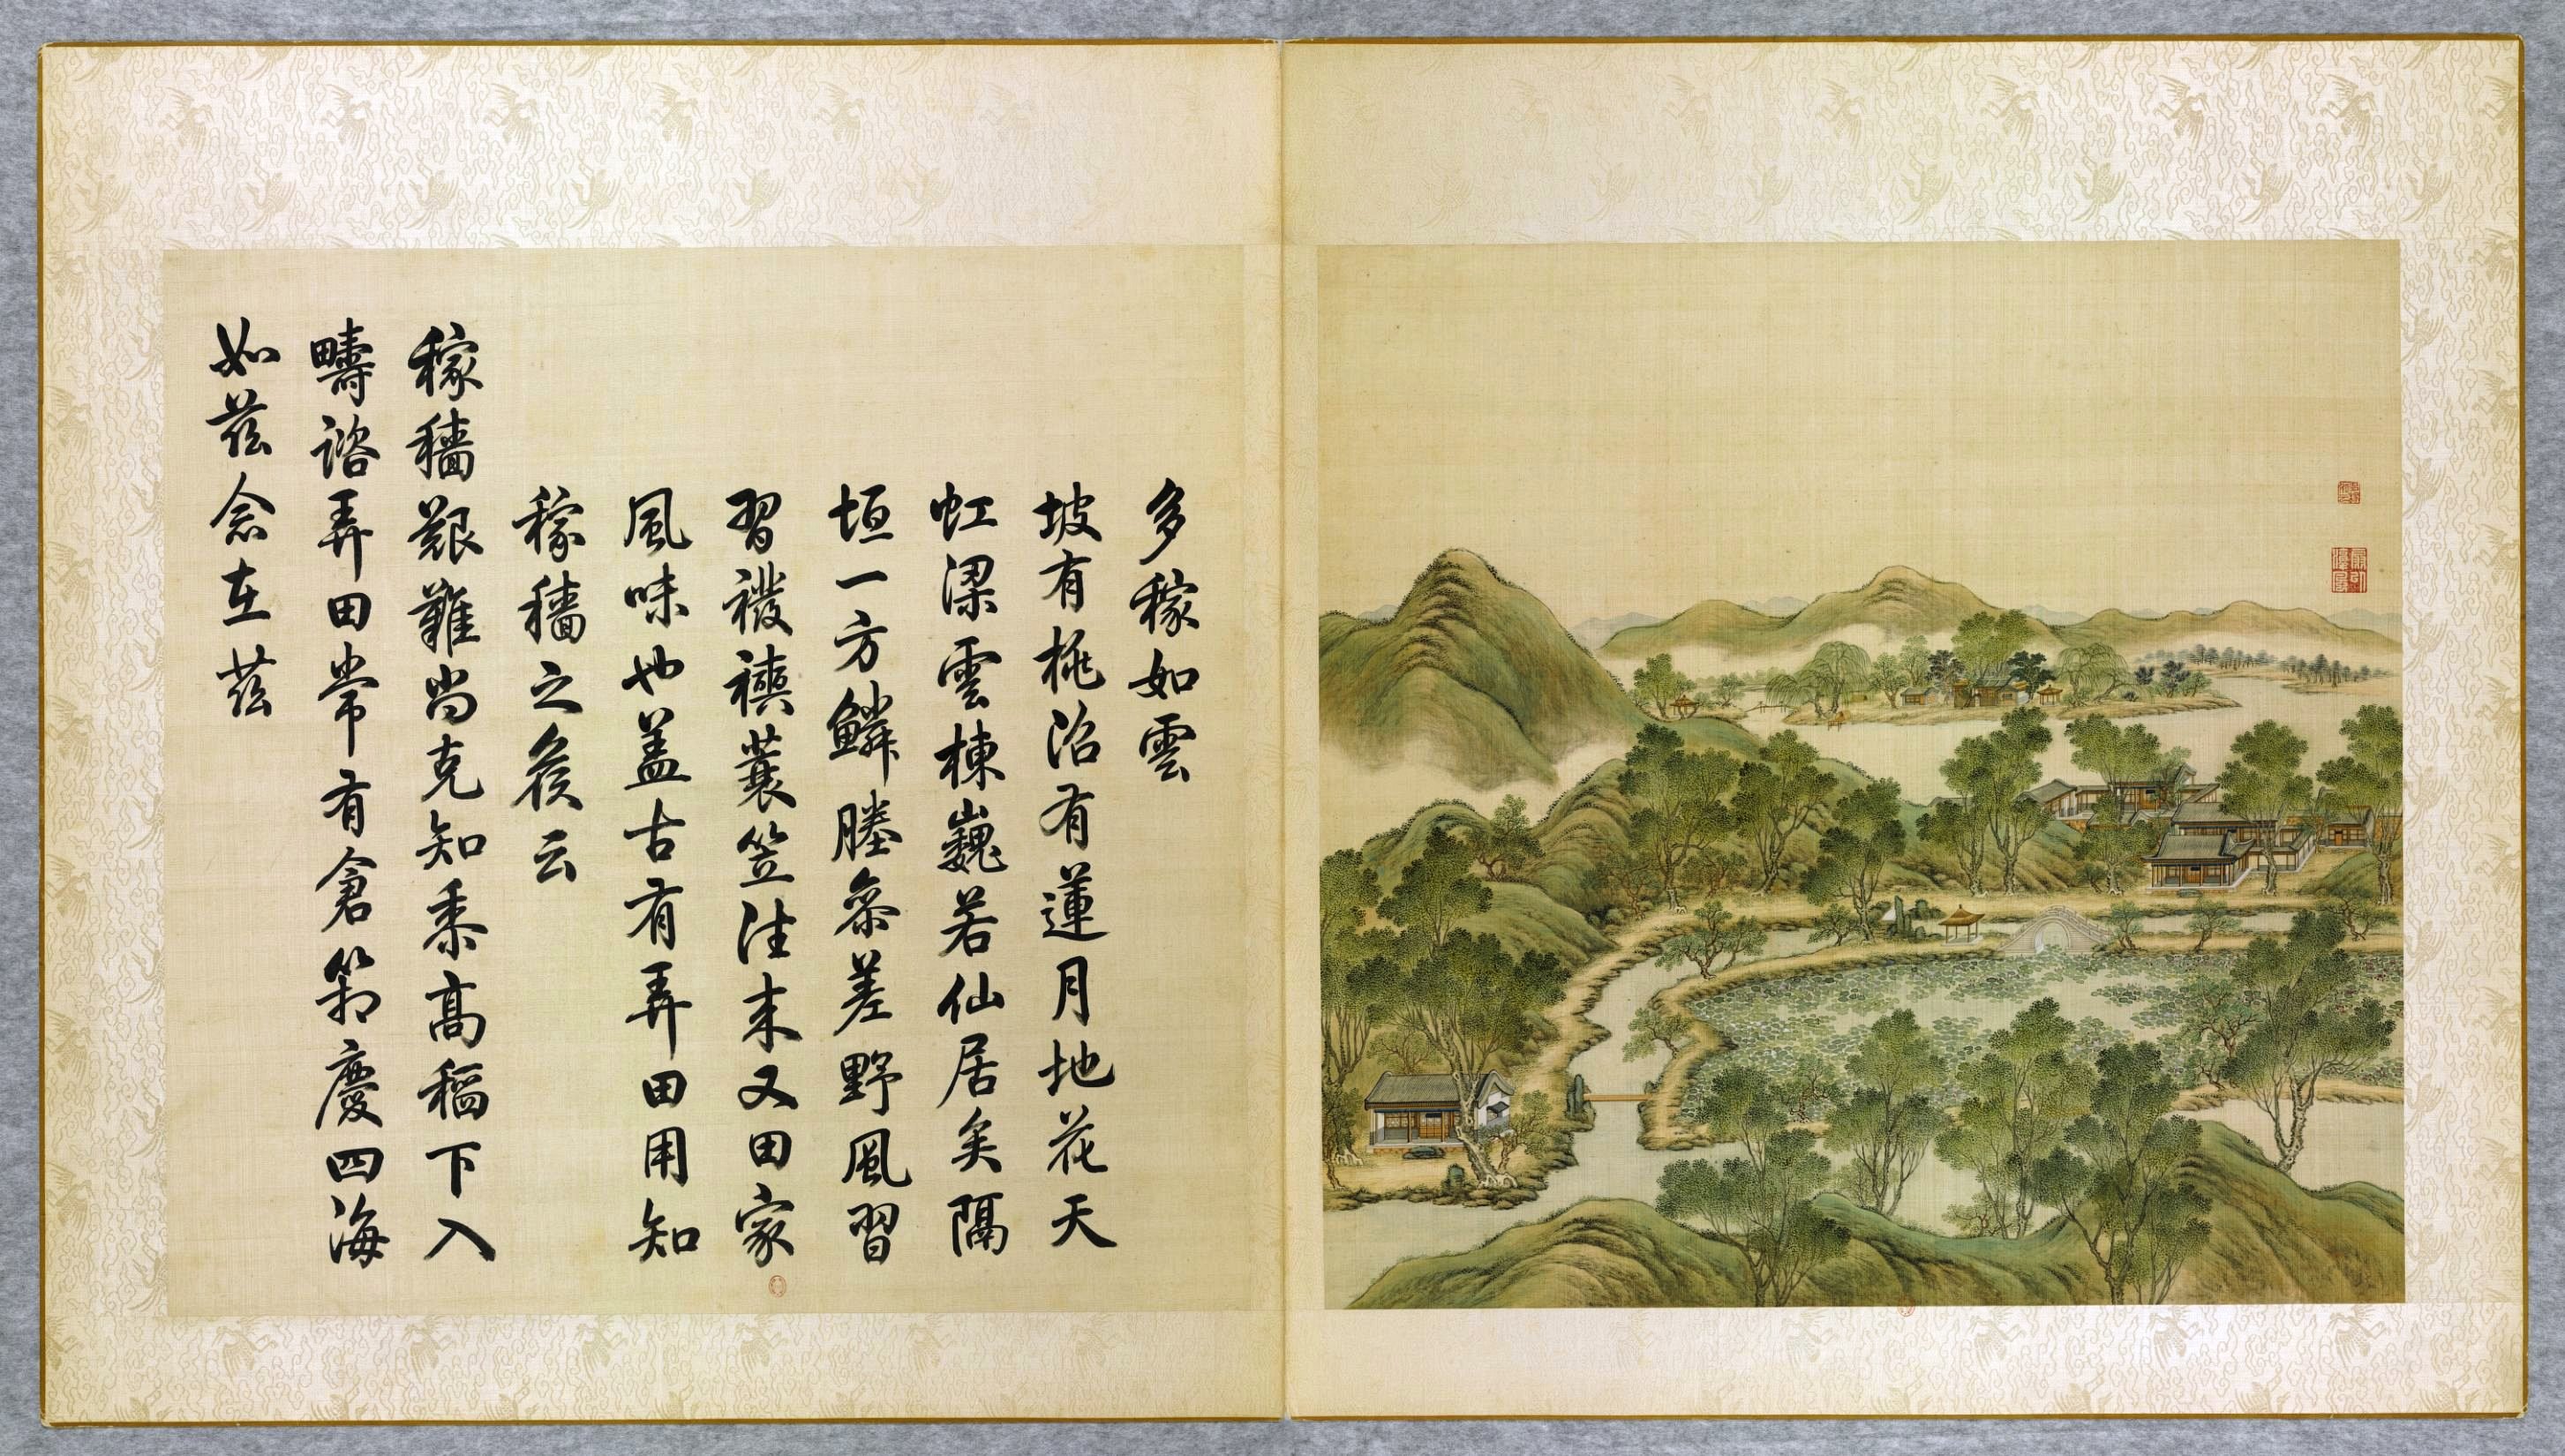 多稼如雲
坡有桃沼有蓮月地花天
虹梁雲棟巍若仙居矣隔
垣一方鱗塍叅差野風習
習襏襫蓑笠往来又田家
風味也蓋古有弄田用知
稼穡之候云
稼穡艱難尚克知黍高稻下入
疇諮弄田常有倉箱慶四海
如兹念在兹